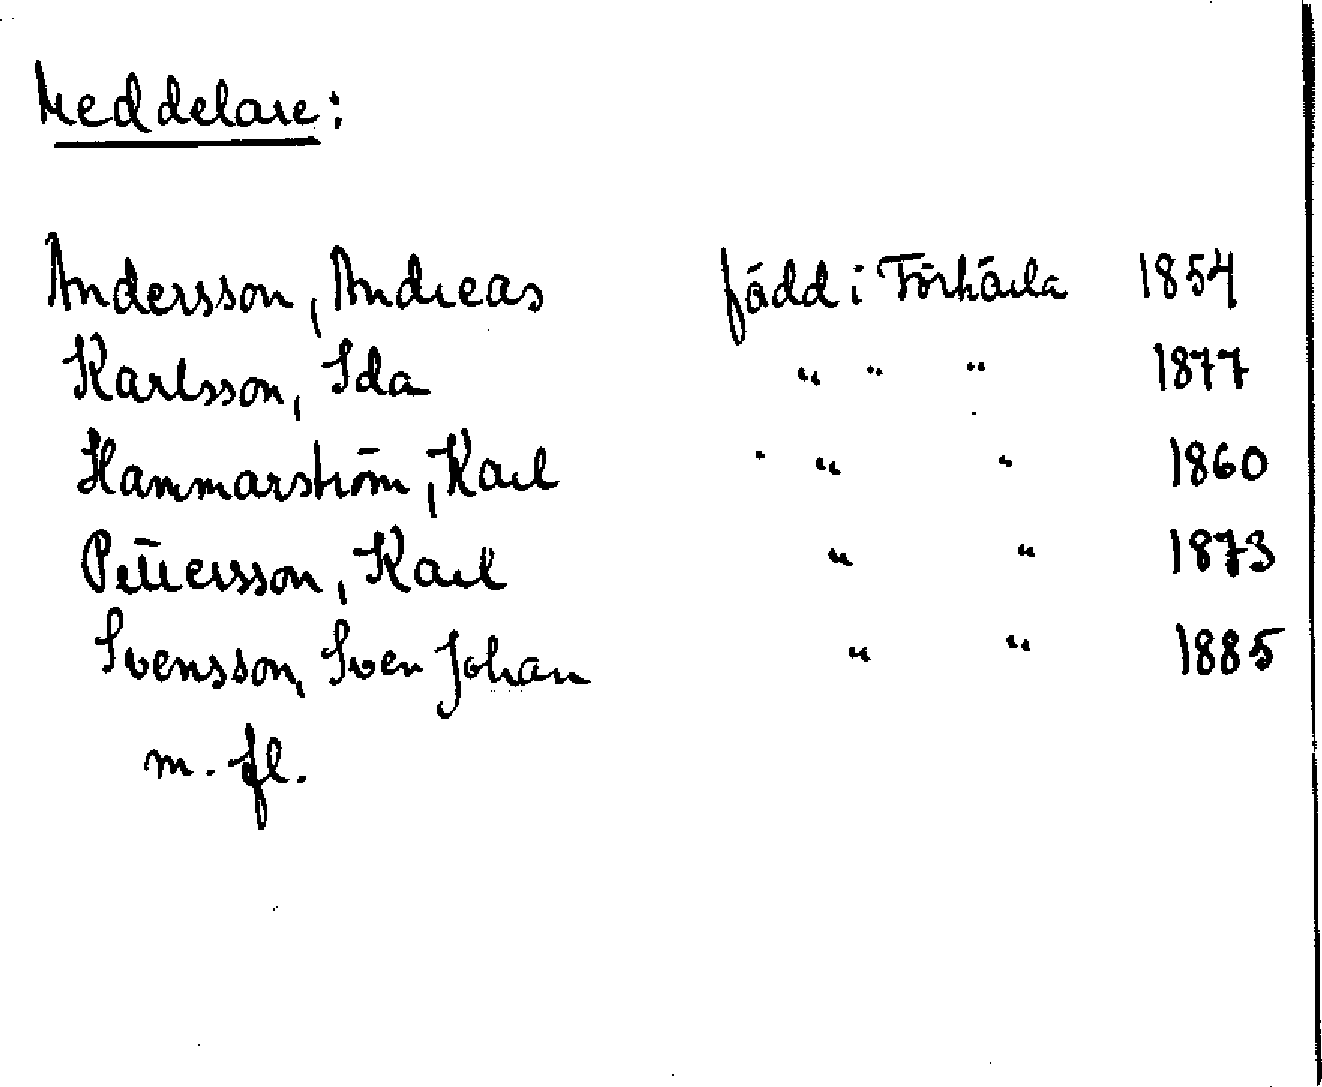 Meddelare:
Andersson, Andreas född i Förhärla 1854
Karlsson, Ida " " " 1877
Hammarström, Karl " " 1860
Pettersson, Karl " " 1873
Svensson, Sven Johan " " 1885
m. fl.